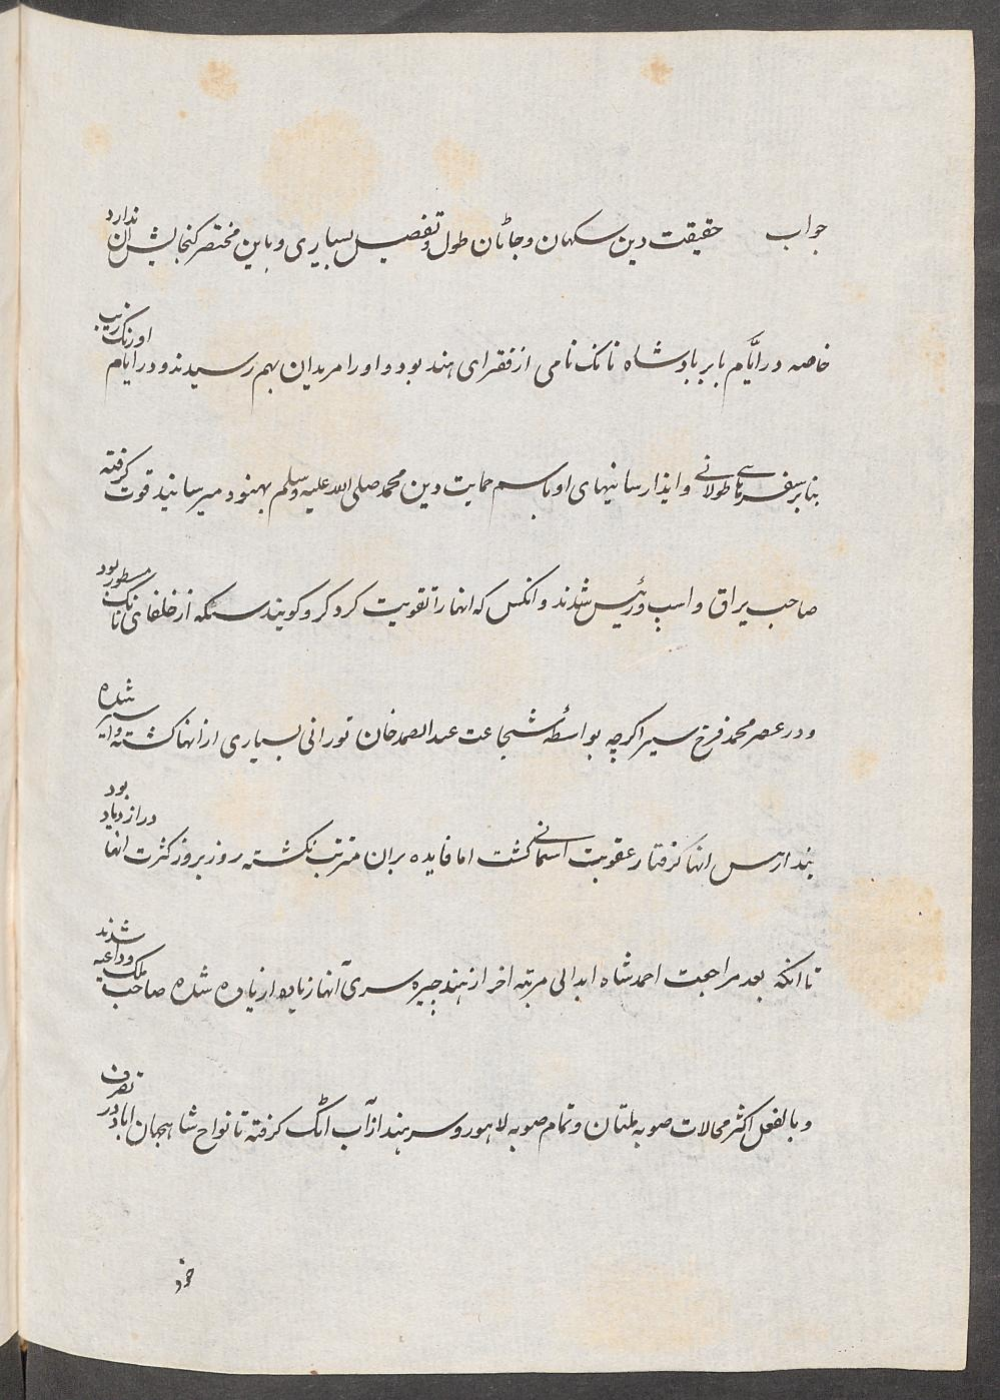 جواب حقیقت دین سکهان و جاتان طول و تفصیل بسیاری و باین مختصر کنجایش ان ندارد
خاصه در ایّام بابر بادشاه نانک نامی از فقرای هند بود و او را مریدان بهم رسیدند و در ایام اورنک زیب
بنابر سفرهای طولانی و ایذا رسانیهای او باسم حمایت دین محمد صلی الله علیه وسلم بهنود میرسانید قوت کرفته
صاحب یراق و اسپ و رئیس شدند و انکس که انها را تقویت کرد کرو کویند سنکه از خلفای نانک مسطور بود
و در عصر محمد فرخ سیر اکرچه بواسطه شجاعت عبد الصمد خان تورانی بسیاری از انها کشته و اسیر شده
انها کرفتار عقوبت اسمانی کشت اما فایده بران مترتب نکشته روز بروز کثرت انها در ازدیاد بود
تا انکه بعد مراجعت احمد شاه ابدالی مرتبه اخر از هند چیره سری آنها زیاده از زیاده شده صاحب ملک و داعیه شدند
و بالفعل اکثر محالات صوبه ملتان و تمام صوبه لاهور و سرهند از آب اتک کرفته تا نواح شاهجهان اباد در تصرف
خود